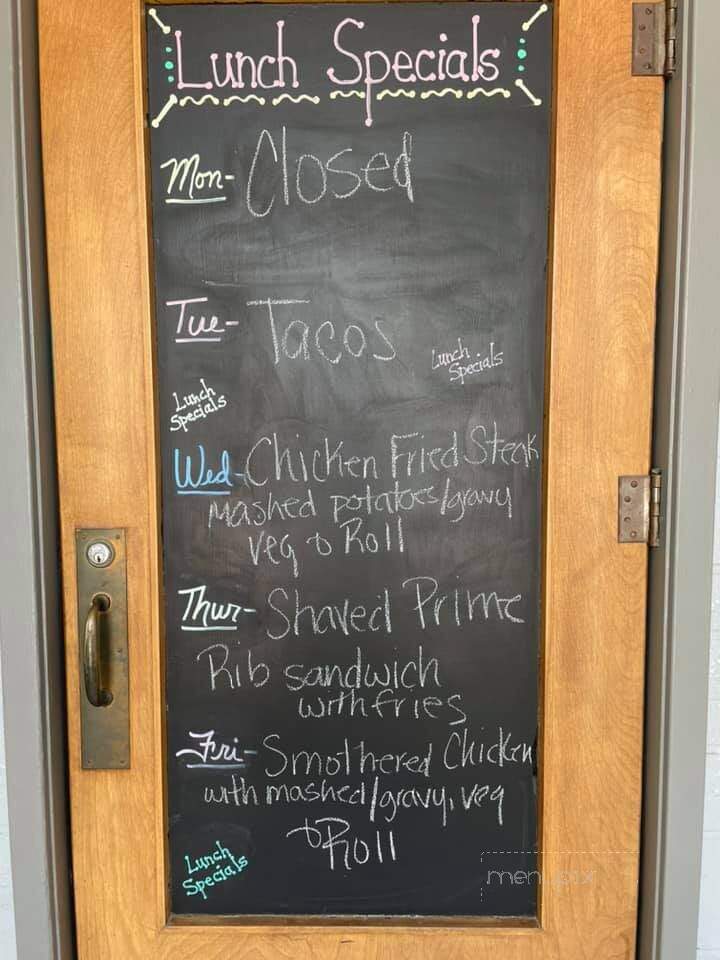 Lunch Specials
Mon- Closed
Tue- Tacos
Lunch
Specials
Lunch
Specials
Wed- Chicken Fried Steak
Mashed potatoes/gravy
veg & Roll
Thur- Shaved Prime
Rib sandwich
with fries
Fri- Smothered Chicken
with mashed/gravy, veg
& Roll
Lunch
Specials